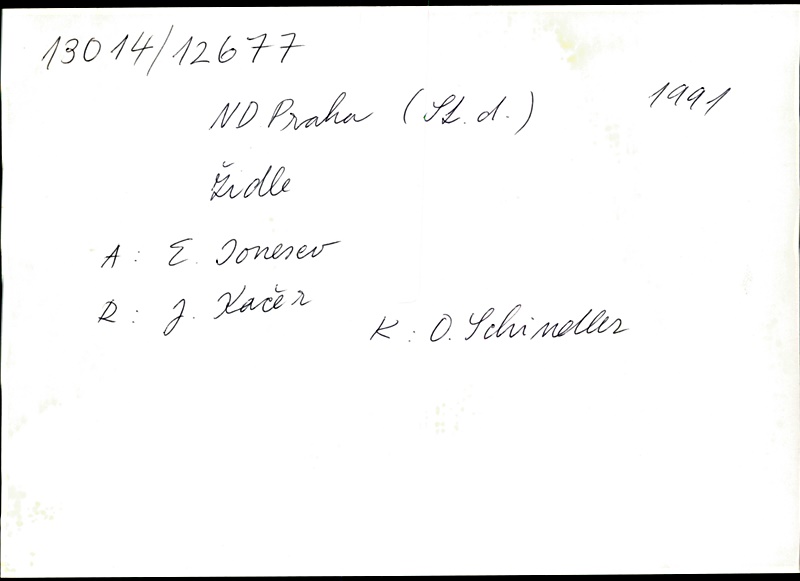 13014/12677
ND Praha (St. d.) 1991
Židle
A: E. Ionesco
R: J. Kačer
K: O. Schindler